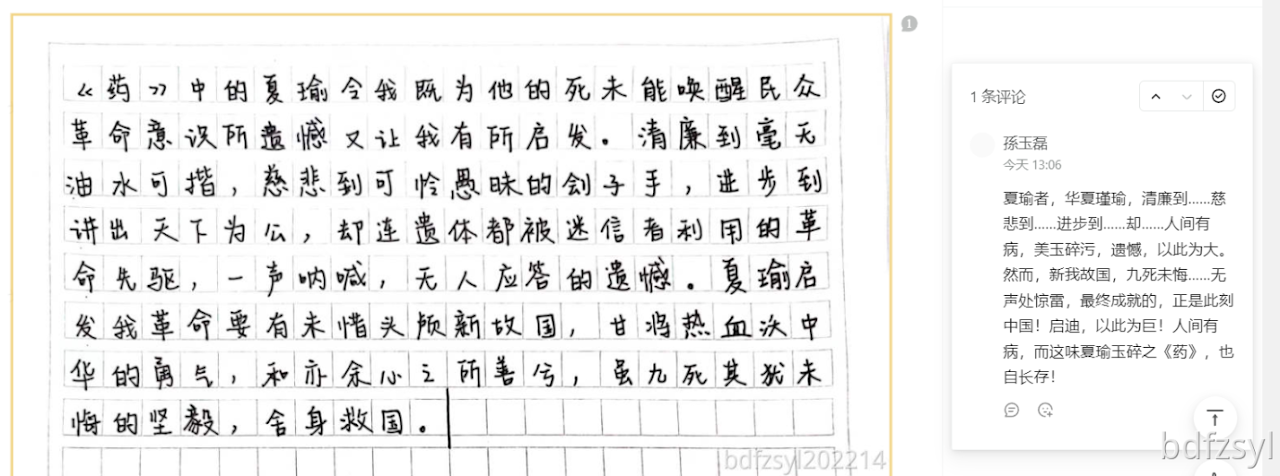 《药》中的夏瑜令我既为他的死未能唤醒民众
革命意识所遗憾又让我有所启发。清廉到毫无
油水可揩，慈悲到可怜愚昧的刽子手，进步到
讲出天下为公，却连遗体都被迷信者利用的革
命先驱，一声呐喊，无人应答的遗憾。夏瑜启
发我革命要有未惜头颅新故国，甘将热血沃中
华的勇气，和亦余心之所善兮，虽九死其犹未
悔的坚毅，舍身救国。
1
1 条评论
孫玉磊
今天 13:06
夏瑜者，华夏瑾瑜，清廉到……慈
悲到……进步到……却……人间有
病，美玉碎污，遗憾，以此为大。
然而，新我故国，九死未悔……无
声处惊雷，最终成就的，正是此刻
中国！启迪，以此为巨！人间有
病，而这味夏瑜玉碎之《药》，也
自长存！
bdfzsyl202214
bdfzsyl